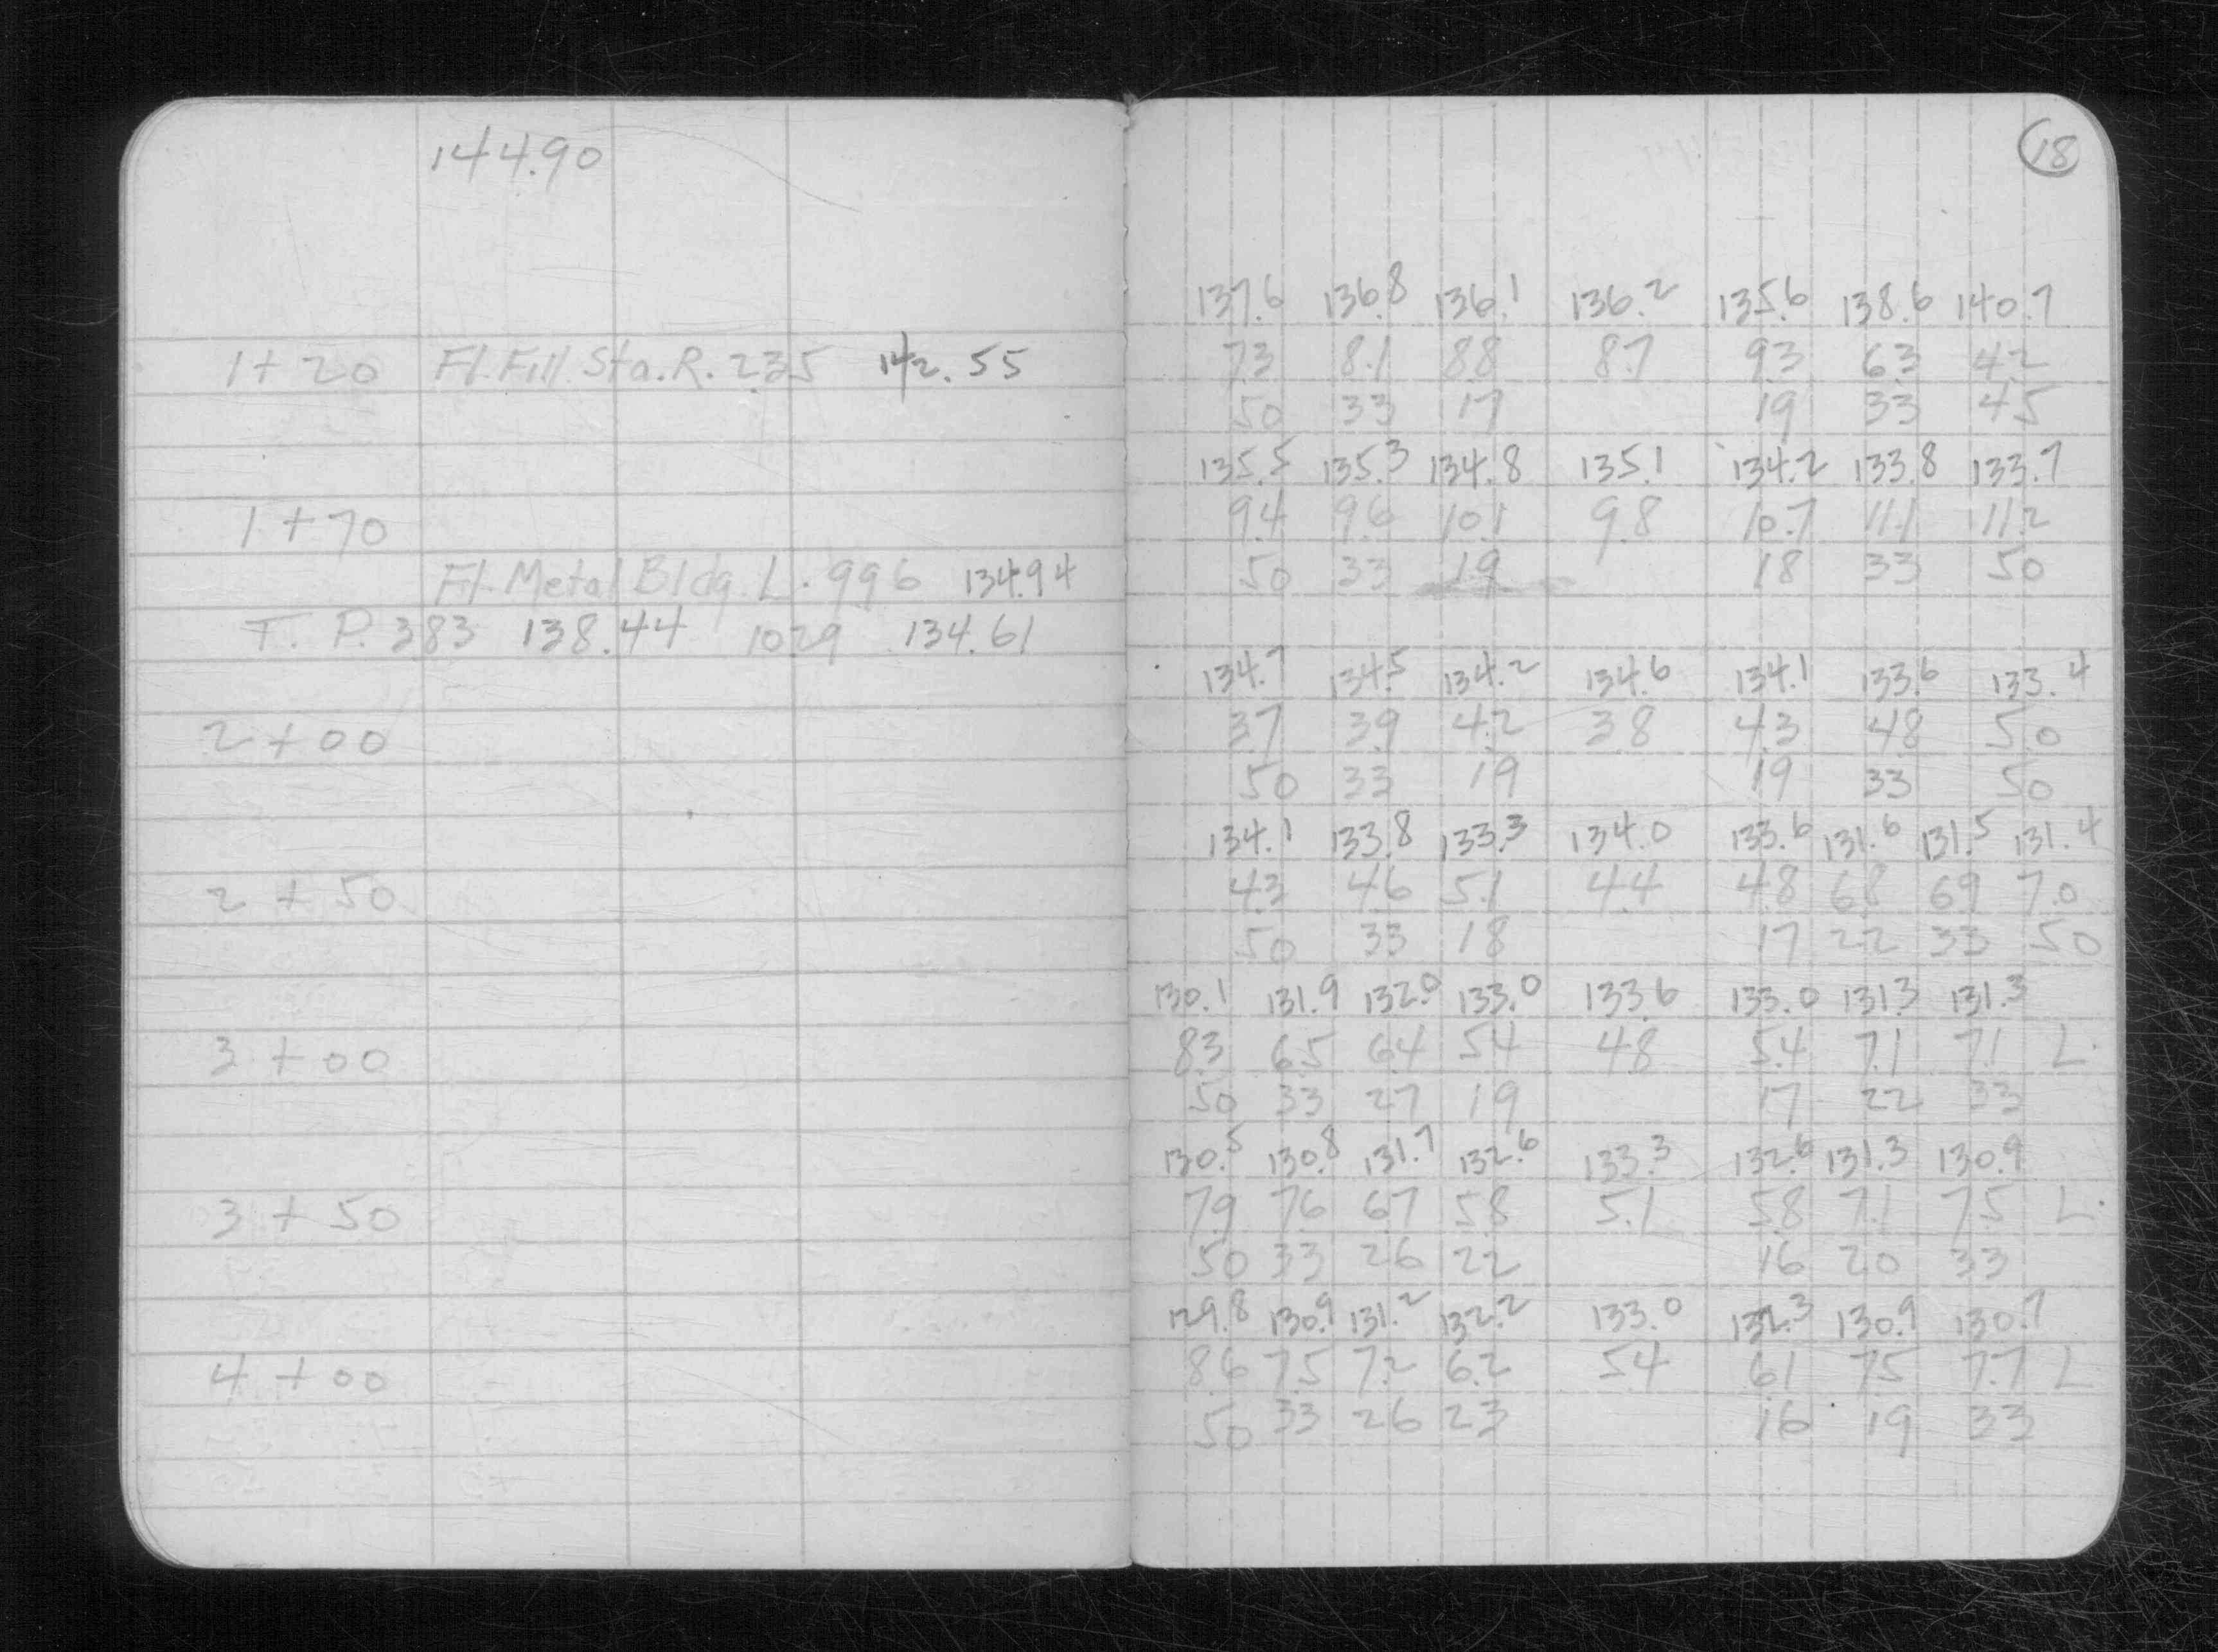 144.90
18
137.6 136.8 136.1 136.2 135.6 138.6 140.7
1+20 Fl. Fill. Sta. R. 2.35 142.55
7.3 8.1 8.8 8.7 9.3 6.3 4.2
50 33 17 19 33 45
135.5 135.3 134.8 135.1 134.2 133.8 133.7
1+70
9.4 9.6 10.1 9.8 10.7 11.1 11.2
Fl. Metal Bldg. L. 996 134.94
50 33 19 18 33 50
T. P. 383 138.44 1029 134.61
134.7 134.5 134.2 134.6 134.1 133.6 133.4
2+00
3.7 3.9 4.2 3.8 4.3 4.8 5.0
50 33 19 19 33 50
134.1 133.8 133.3 134.0 133.6 131.6 131.5 131.4
2+50
4.3 4.6 5.1 4.4 4.8 6.8 6.9 7.0
50 33 18 17 22 33 50
130.1 131.9 132.0 133.0 133.6 133.0 131.3 131.3
3+00
8.3 6.5 6.4 5.4 4.8 5.4 7.1 7.1 L.
50 33 27 19 17 22 33
130.5 130.8 131.7 132.6 133.3 132.6 131.3 130.9
3+50
7.9 7.6 6.7 5.8 5.1 5.8 7.1 7.5 L.
50 33 26 22 16 20 33
129.8 130.9 131.2 132.2 133.0 132.3 130.9 130.7
4+00
8.6 7.5 7.2 6.2 5.4 6.1 7.5 7.7 L
50 33 26 23 16 19 33